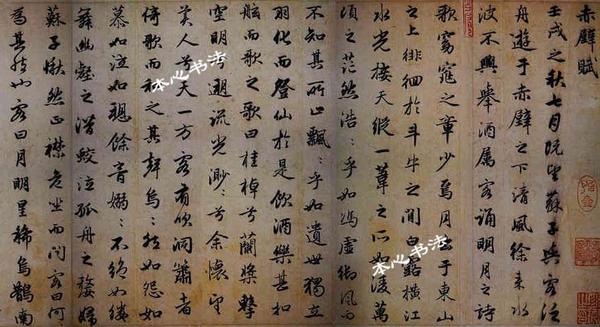 赤壁賦
壬戌之秋七月既望蘇子與客泛
舟遊于赤壁之下清風徐來水
波不興舉酒属客誦明月之詩
歌窈窕之章少焉月出于東山
之上徘徊於斗牛之間白露橫江
水光接天縱一葦之所如凌萬
頃之茫然浩〻乎如馮虛御風而
不知其所止飄〻乎如遺世獨立
羽化而登仙於是飲酒樂甚扣
舷而歌之歌曰桂棹兮蘭槳擊
空明兮泝流光渺〻兮余懷望
美人兮天一方客有吹洞簫者
倚歌而和之其聲嗚〻然如怨如
慕如泣如訴餘音嫋〻不絕如縷
舞幽壑之潛蛟泣孤舟之嫠婦
蘇子愀然正襟危坐而問客曰何
為其然也客曰月明星稀烏鵲南
本心书法
本心书法